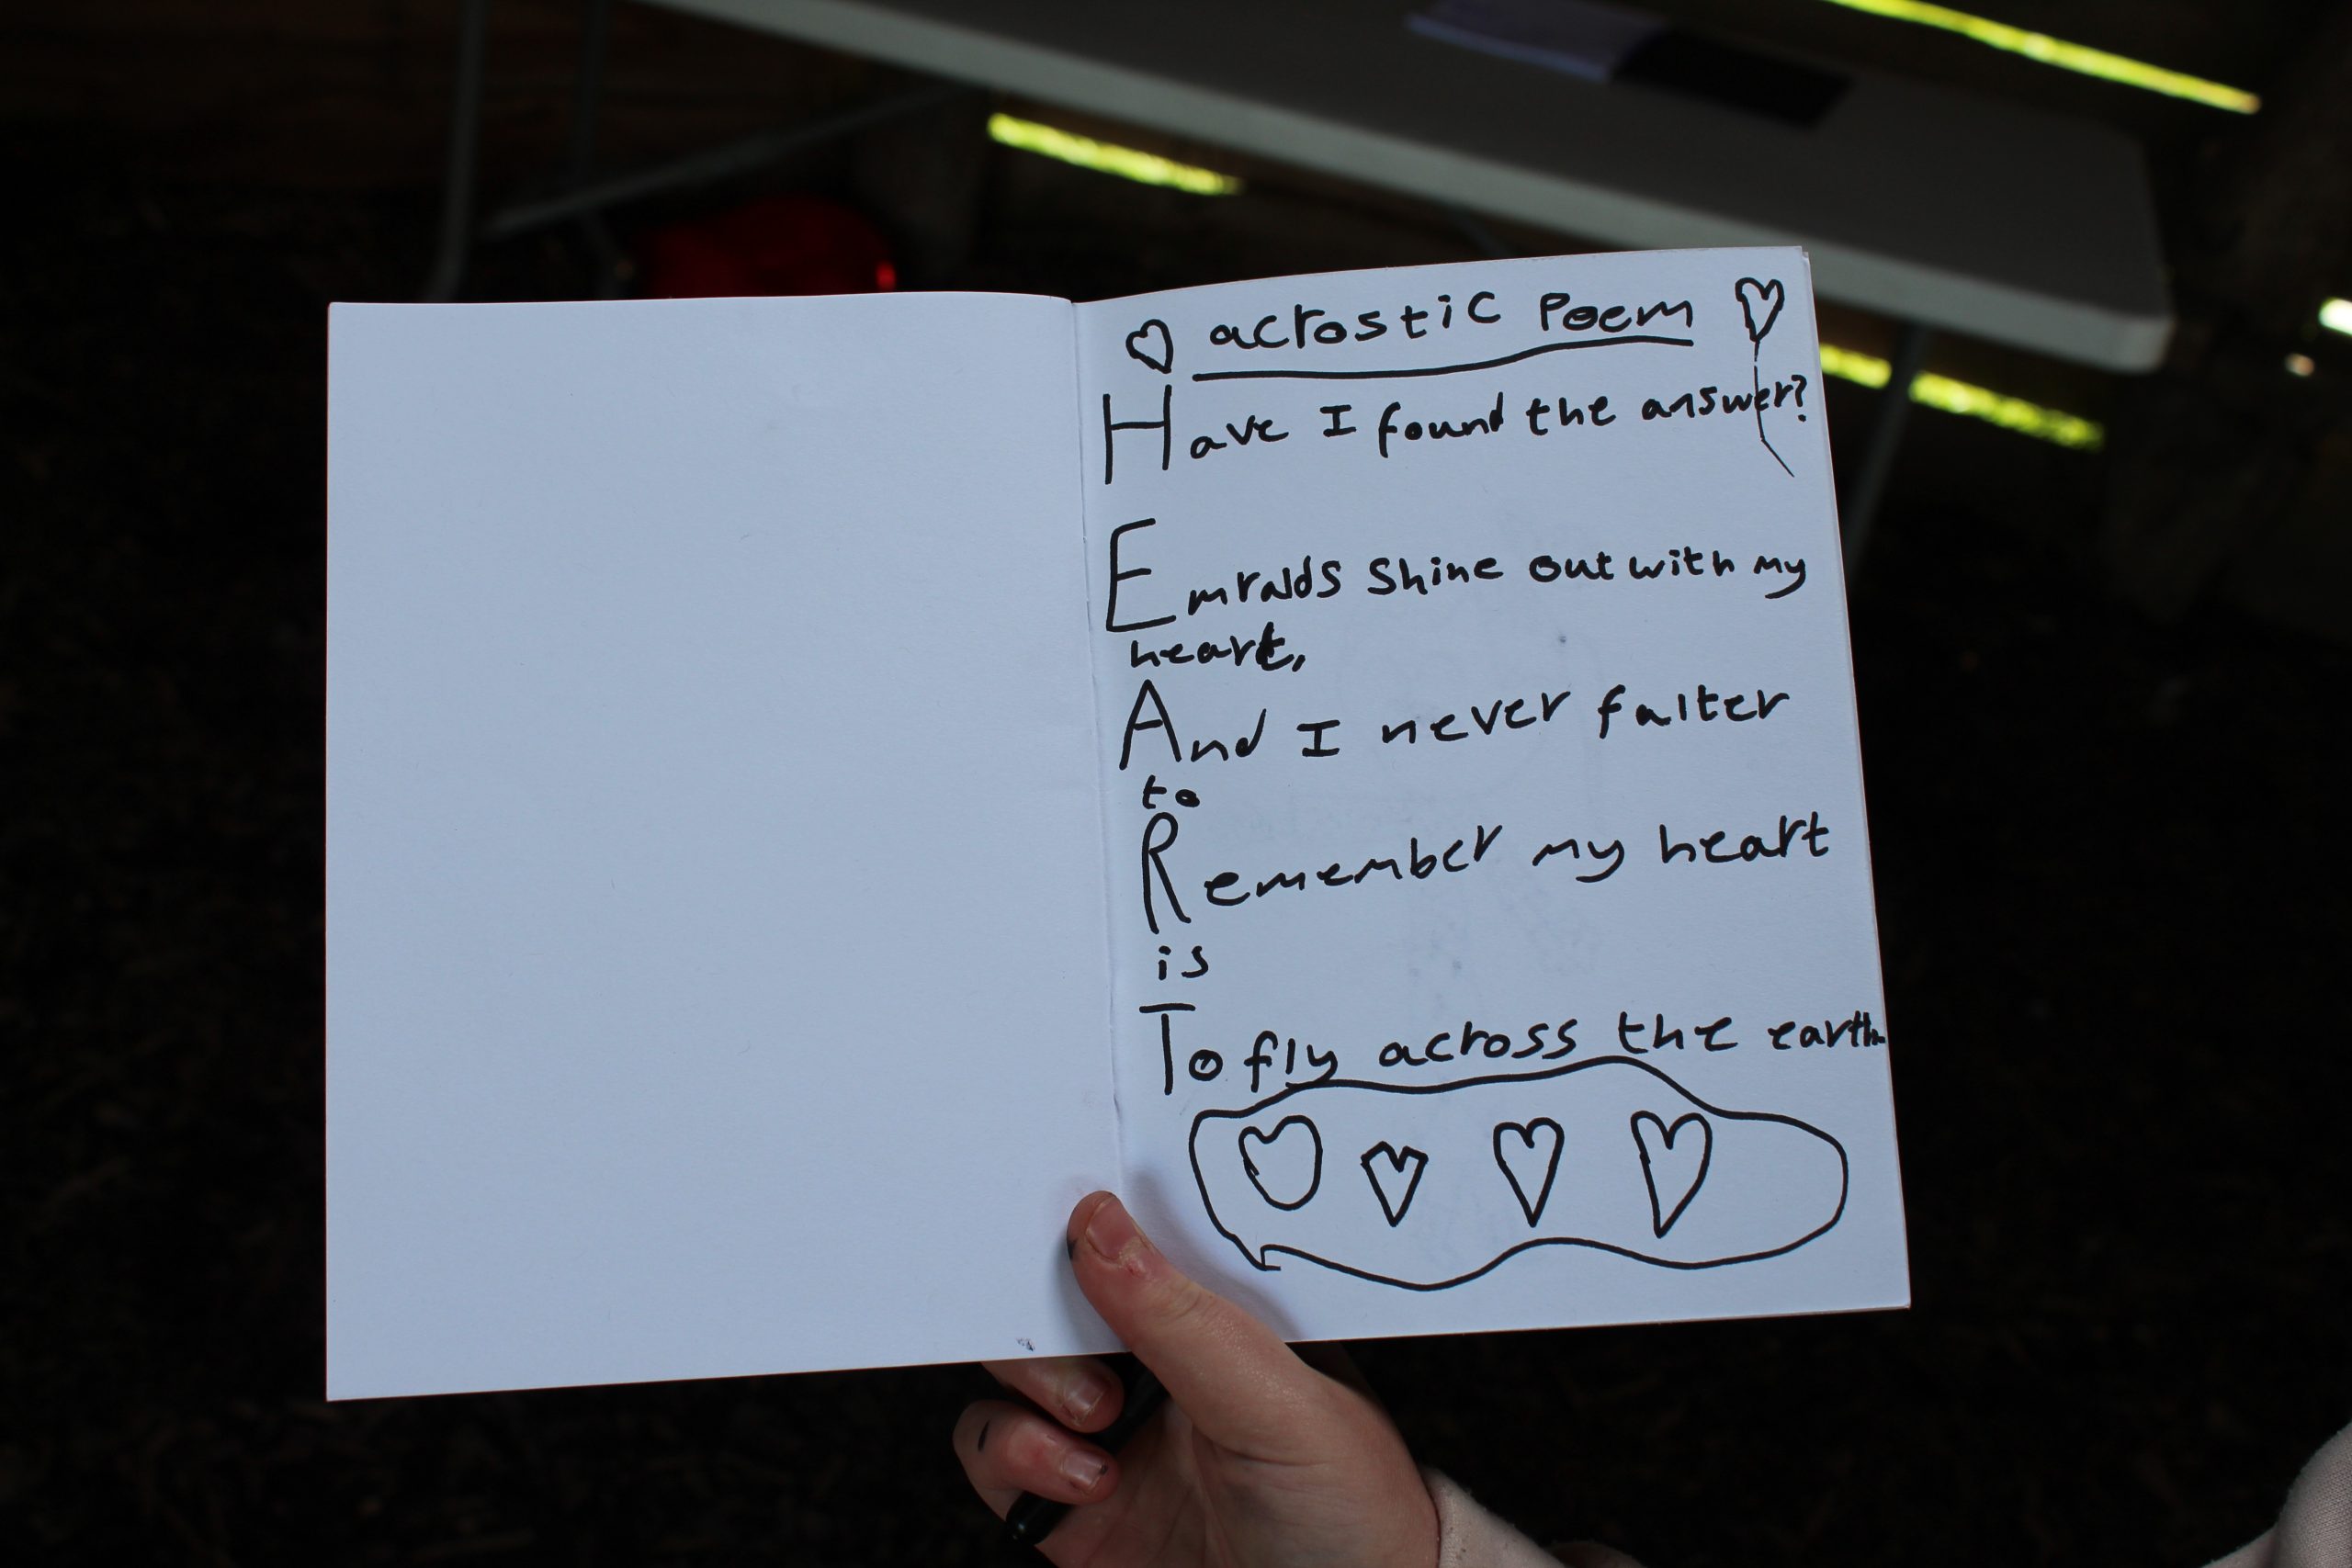 acrostic Poem
Have I found the answer?
Emralds shine out with my
heart,
And I never falter
to
Remember my heart
is
To fly across the earth